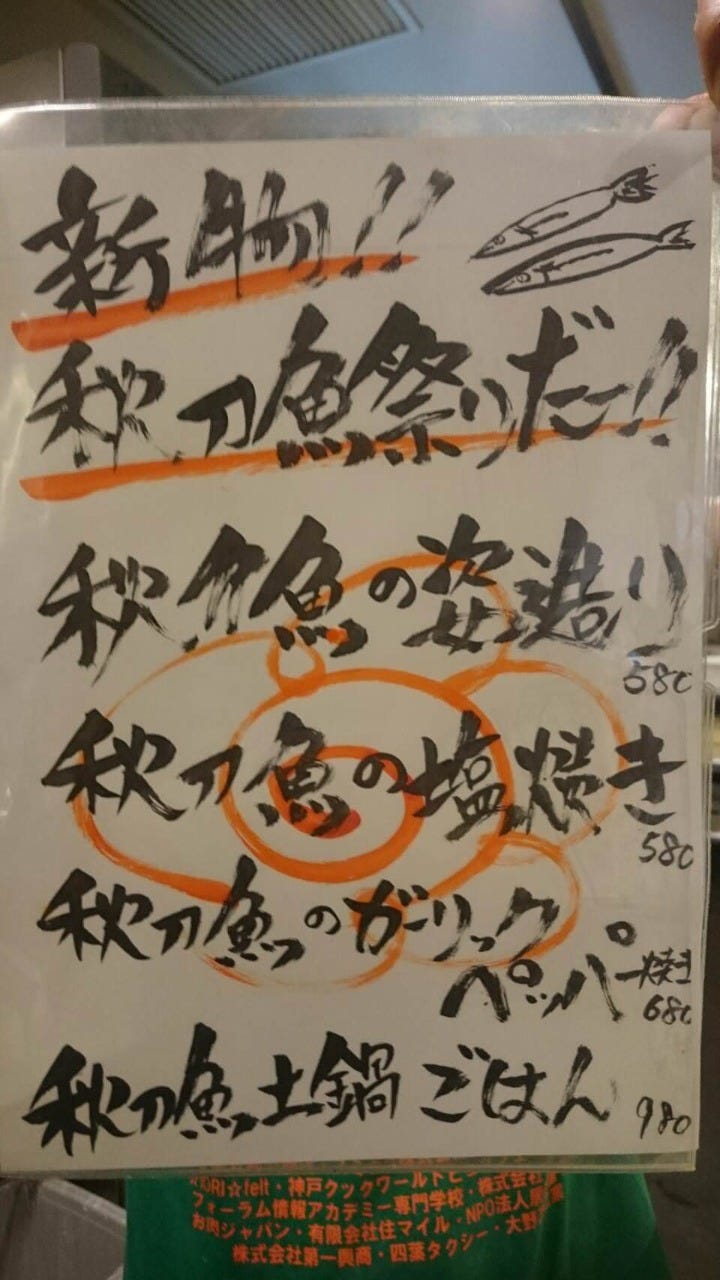 新物!!
秋刀魚祭りだー!!
秋刀魚の姿造り
580
秋刀魚の塩焼き
580
秋刀魚のガーリック
ペッパー焼き
680
秋刀魚土鍋ごはん
980
ORI☆felt・神戸クックワールドビ
フォーラム情報アカデミー専門学校・株式会社
お肉ジャパン・有限会社住マイル・NPO法人
株式会社第一興商・四葉タクシー・大野